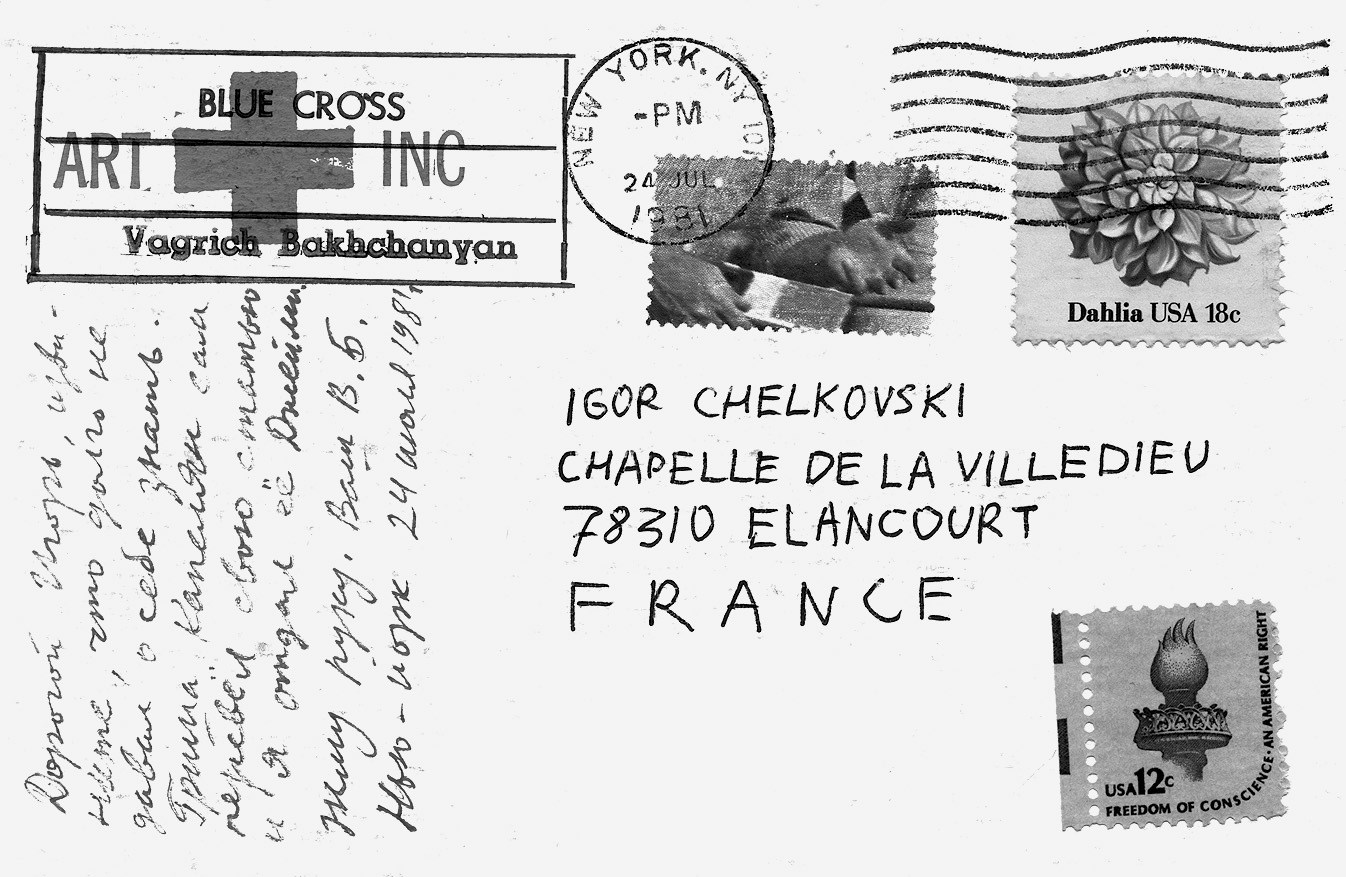 BLUE CROSS
ART INC
Vagrich Bakhchanyan
NEW YORK, NY 101
-PM
24 JUL
1981
Dahlia USA 18c
IGOR CHELKOVSKI
CHAPELLE DE LA VILLEDIEU
78310 ELANCOURT
FRANCE
USA 12c
FREEDOM OF CONSCIENCE • AN AMERICAN RIGHT
Дорогой Игорь, изви-
ните, что долго не
давал о себе знать.
Гриша Капелян сам
перевёл свою статью
и я отдал её
Жму руку. Ваш В.Б.
Нью-Йорк 24 июля 1981